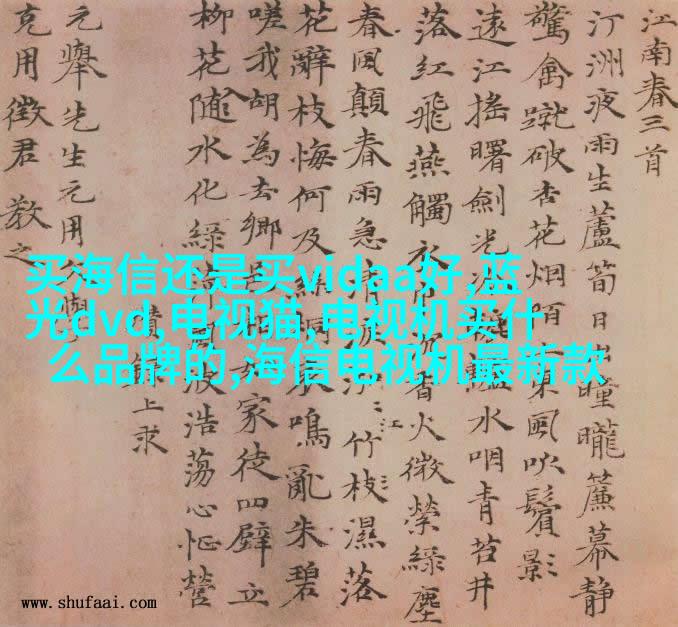 江南春三首
汀洲夜雨生蘆筍日出曈曨簾幕静
驚禽蹴破杏花烟陌東風吹鬢影
遠江摇曙劍光水咽青苔井
落红飛燕觸衣巾沉香火微縈緑塵
春風顛春雨急清淚江竹枝濕落
花辭枝悔何及鳴亂朱碧
嗟我胡為去鄉家徒四壁立
柳花随水化緑波浩蕩心怔營
上求
元舉先生元用
克用徵君教之
买海信还是买vidaa好,蓝
光dvd,电视猫,电视机买什
么品牌的,海信电视机最新款
www.shufaai.com